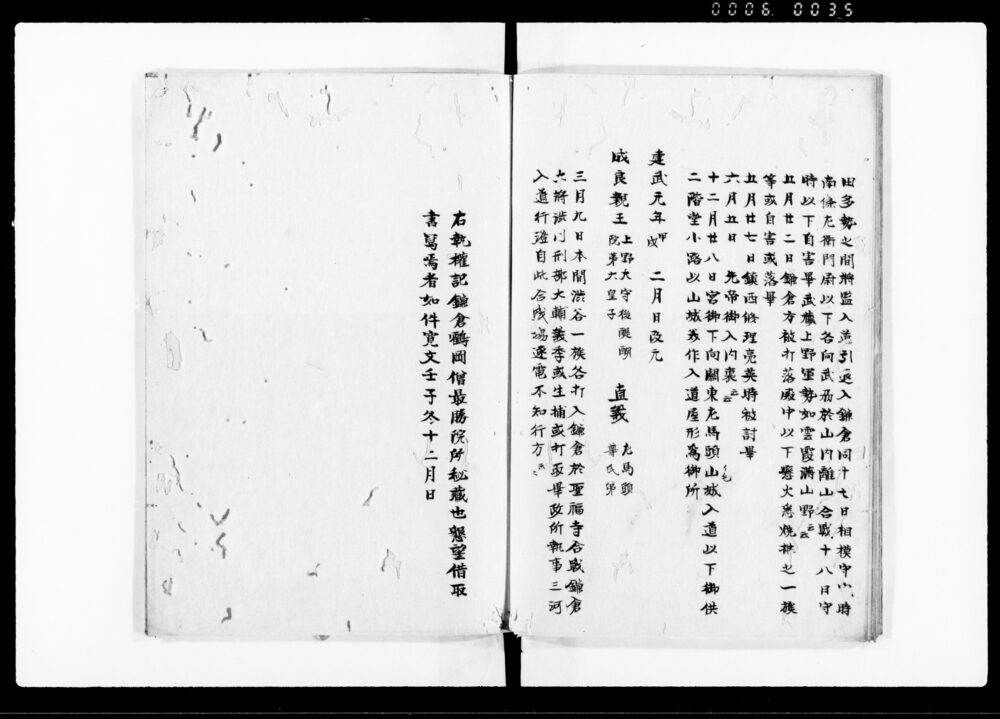 0006 0035
田多勢之間将監入道引返入鎌倉同十七日相模守時
南條左衛門尉以下各向武州於山内離山合戦十八日守
時以下自害畢武蔵上野軍勢如雲霞満山野云云
五月廿二日鎌倉方被打落殿中以下懸火悉焼拂之一族
等或自害或落畢
五月廿七日鎮西修理亮英時被討畢
六月五日 先帝御入内裏云云
十二月廿八日宮御下向關東左馬頭山城入道以下御供
二階堂小路以山城入道屋形為御所
建武元年甲戌 二月日改元
成良親王 上野大守後醍醐院第六皇子 直義 左馬頭尊氏弟
三月九日本間渋谷一族各打入鎌倉於聖福寺合戦鎌倉
大将渋川刑部大輔義季或生捕或打取畢政所執事三河
入道行澄自此合戦場逐電不知行方云云
右執權記鎌倉鶴岡僧最勝院所秘蔵也懇望借取
書寫焉者如件寛文壬子冬十二月日